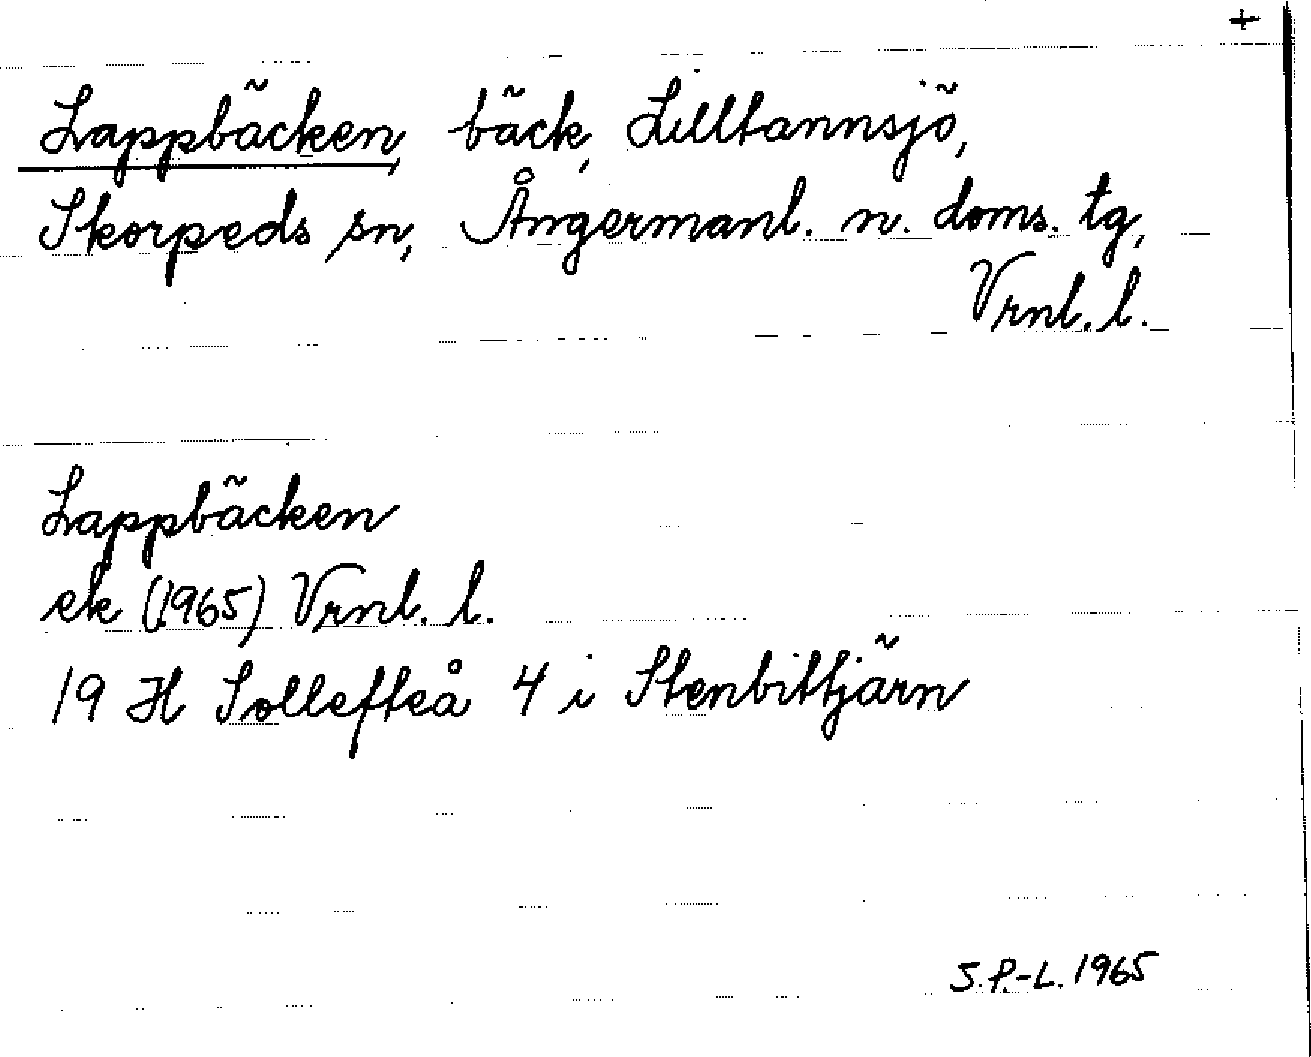 +
Lappbäcken, bäck, Lilltannsjö,
Skorpeds sn, Ångermanl. n. doms. tg,
Vrnl. l.
Lappbäcken
ek (1965) Vrnl. l.
19 H Sollefteå 4 i Stenbittjärn
S.P.-L. 1965